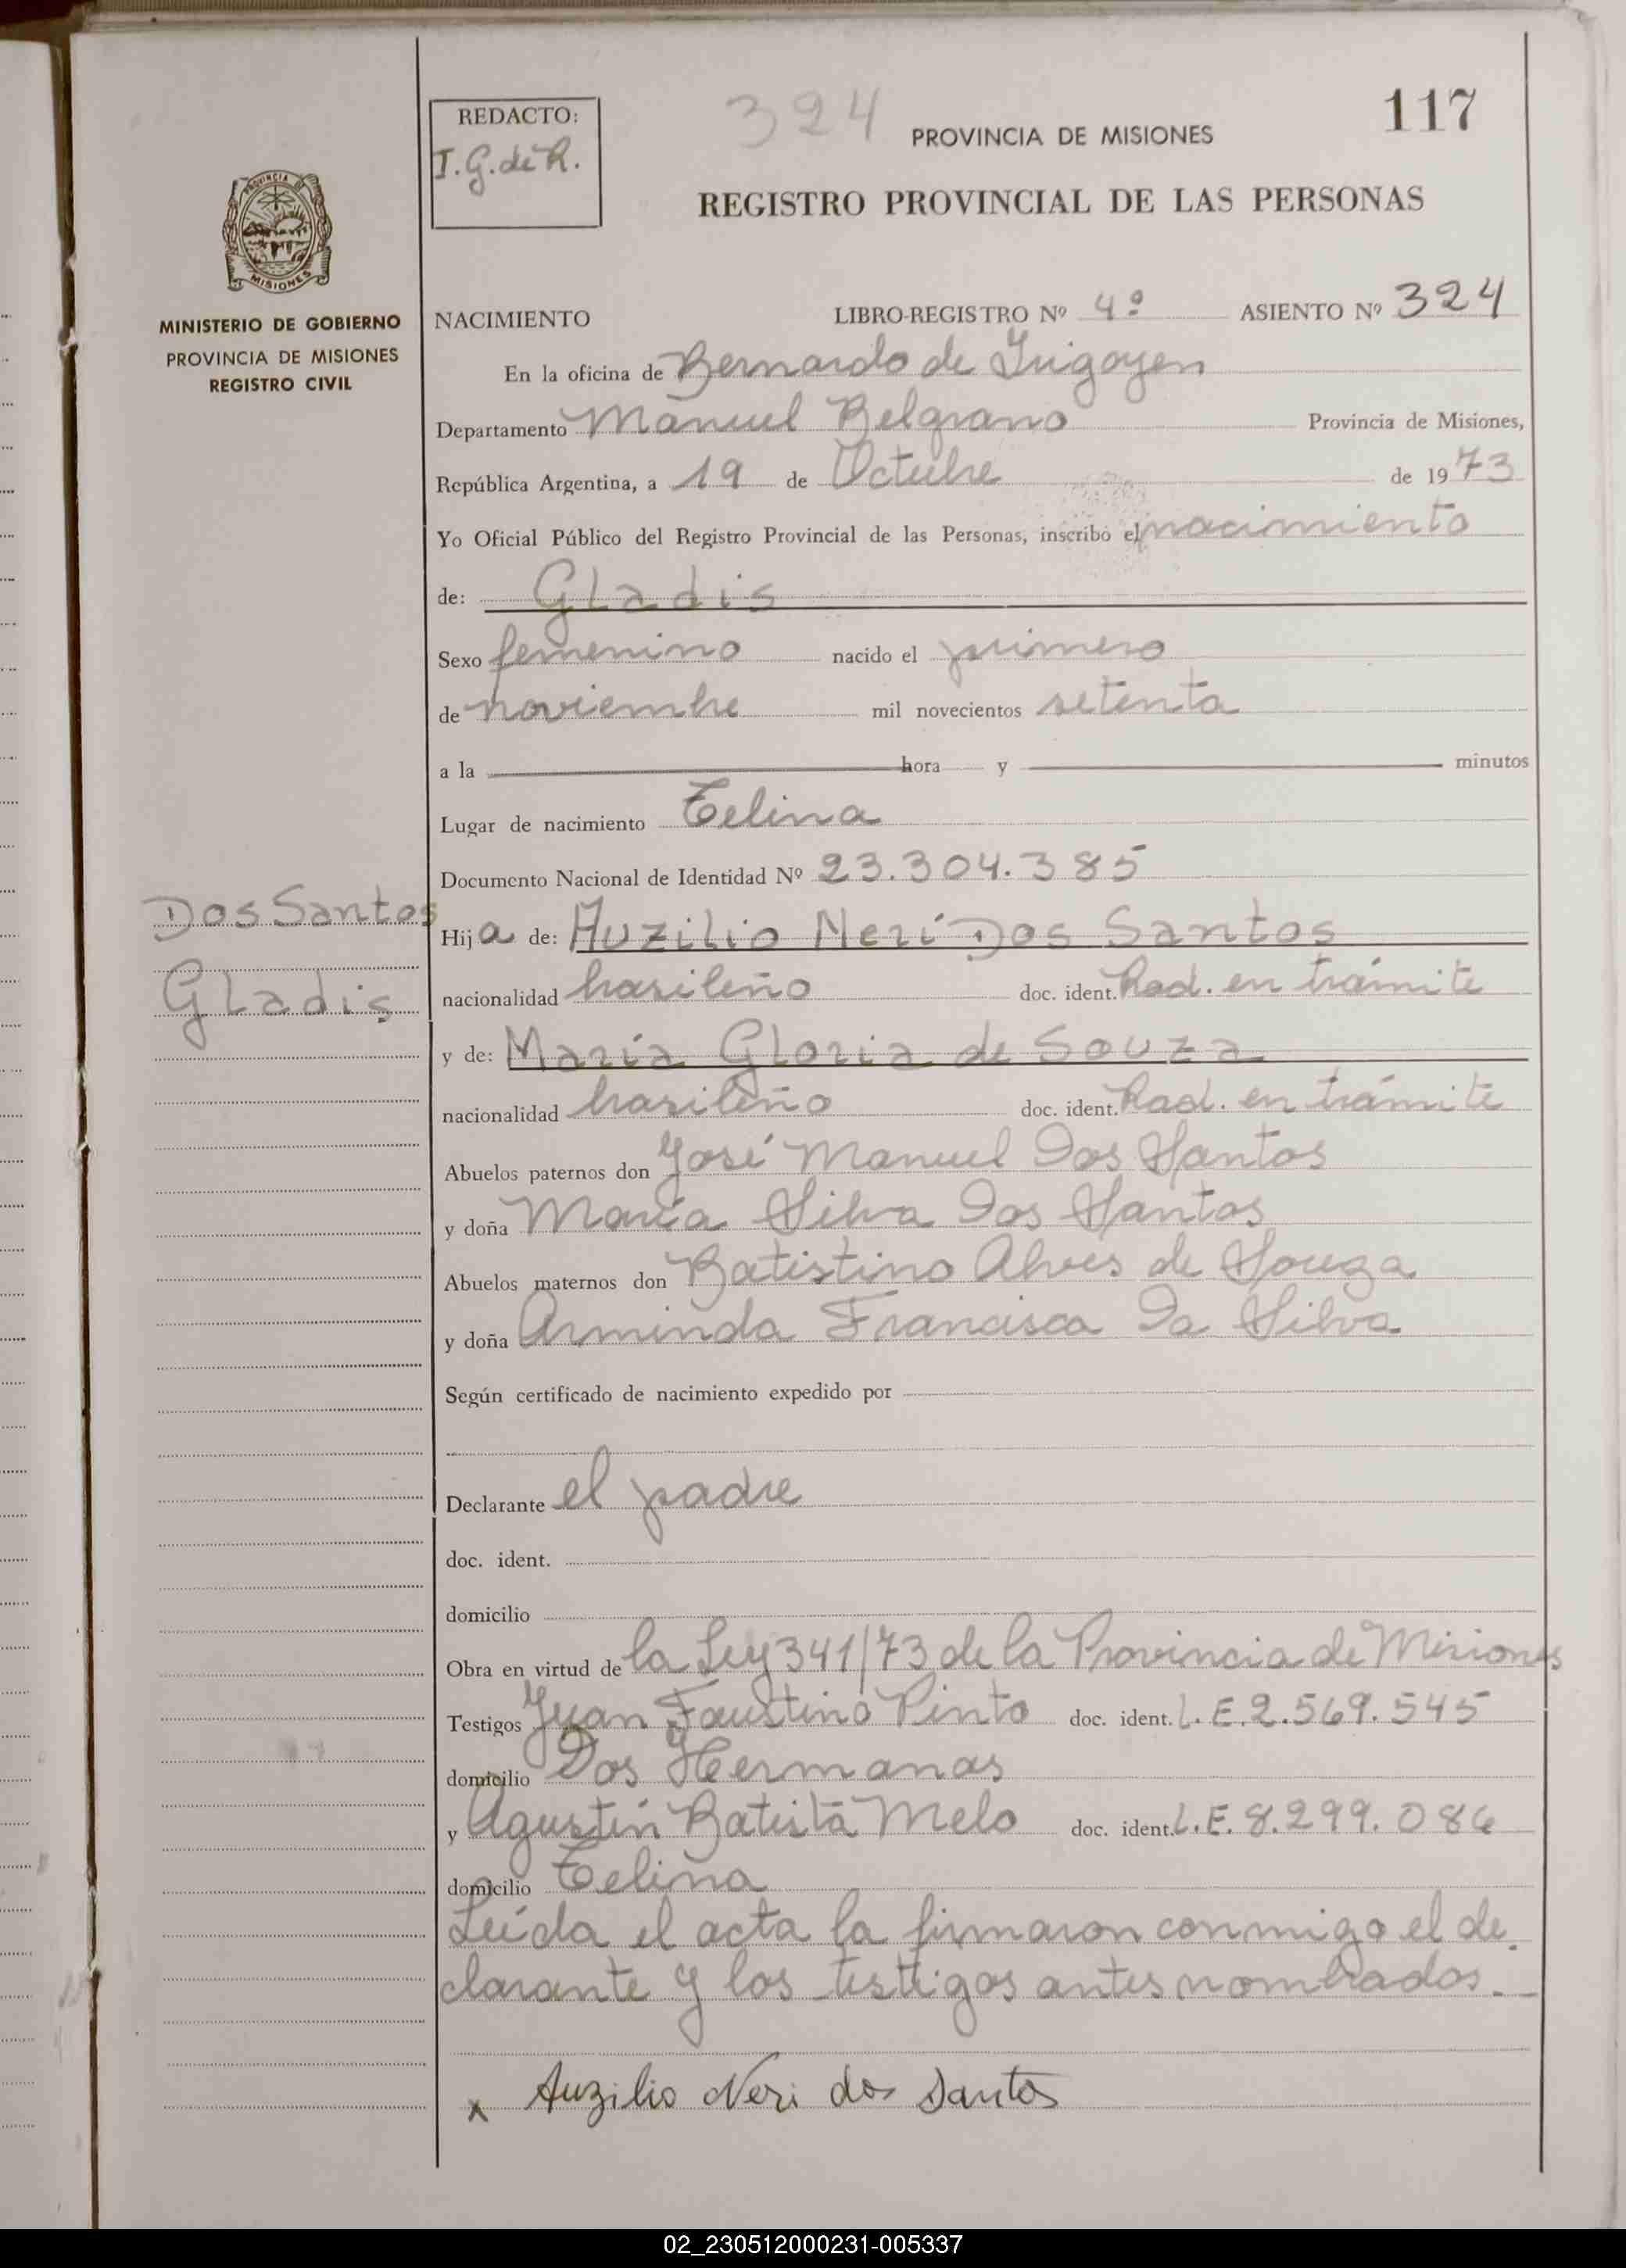 REDACTO:
I. G. de R.
324
PROVINCIA DE MISIONES
117
REGISTRO PROVINCIAL DE LAS PERSONAS
PROVINCIA DE
MISIONES
MINISTERIO DE GOBIERNO
PROVINCIA DE MISIONES
REGISTRO CIVIL
NACIMIENTO LIBRO-REGISTRO Nº 4º ASIENTO Nº 324
En la oficina de Bernardo de Irigoyen
Departamento Manuel Belgrano Provincia de Misiones,
República Argentina, a 19 de Octubre de 1973
Yo Oficial Público del Registro Provincial de las Personas, inscribo el nacimiento
de: Gladis
Sexo femenino nacido el primero
de noviembre mil novecientos setenta
a la hora y minutos
Lugar de nacimiento Celina
Documento Nacional de Identidad Nº 23.304.385
Dos Santos
Gladis
Hija de: Auzilio Neri Dos Santos
nacionalidad brasileño doc. ident. Rad. en trámite
y de: María Gloria de Souza
nacionalidad brasileño doc. ident. Rad. en trámite
Abuelos paternos don José Manuel Dos Santos
y doña María Silva Dos Santos
Abuelos maternos don Batistino Alves de Souza
y doña Arminda Francisca Da Silva
Según certificado de nacimiento expedido por
Declarante el padre
doc. ident.
domicilio
Obra en virtud de la Ley 341/73 de la Provincia de Misiones
Testigos Juan Faustino Pinto doc. ident. L.E.2.569.545
domicilio Dos Hermanas
y Agustín Batista Melo doc. ident. L.E. 8.299.086
domicilio Celina
Leída el acta la firmaron conmigo el de-
clarante y los testigos antes nombrados.-
x Auzilio Neri dos Santos
02_230512000231-005337